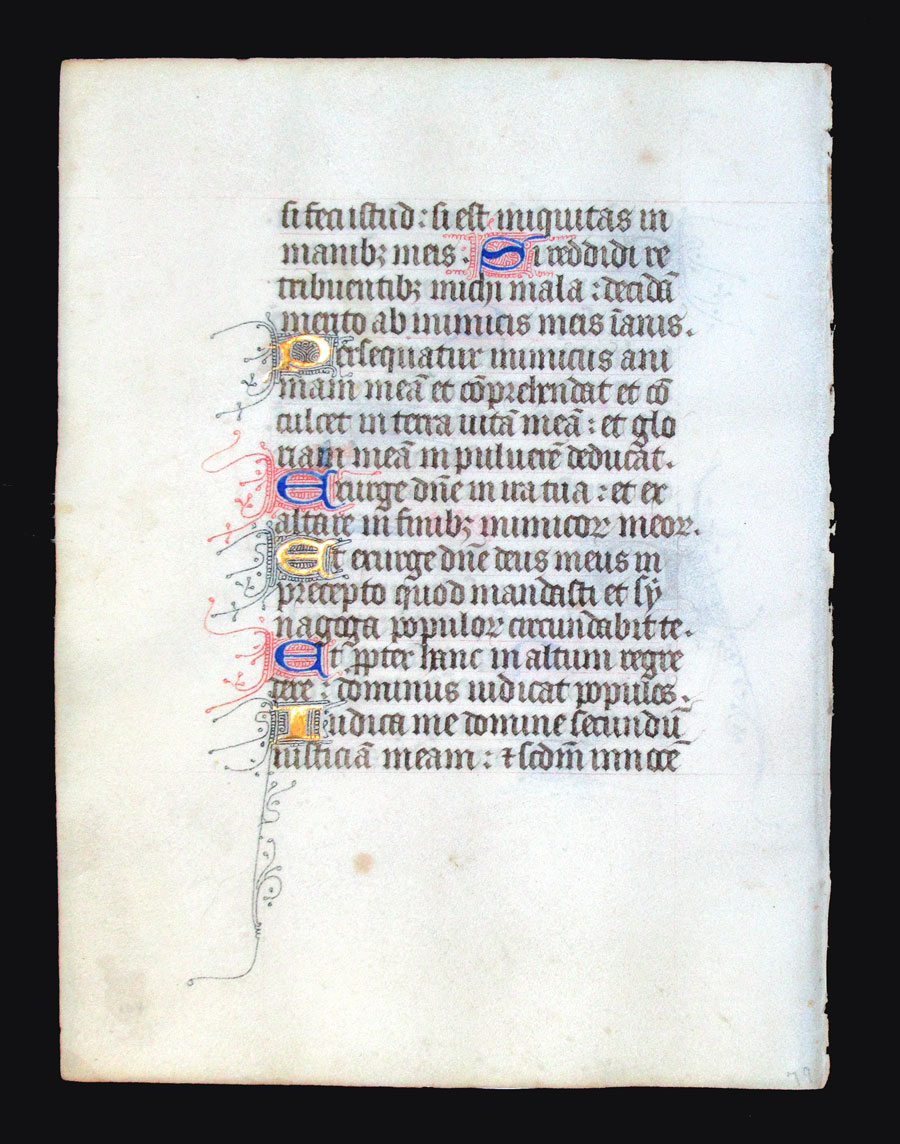 si feci istud : si est iniquitas in
manibꝫ meis . Si reddidi re
tribuentibꝫ michi mala : decidā
merito ab inimicis meis īanis .
Persequatur inimicus ani
mam meā et cōprehendat et cō
culcet in terra uitā meā : et glo
riam meā in puluerē deducat .
Exurge dn̄e in ira tua : et ex
altare in finibꝫ inimicoꝝ meoꝝ .
Et exurge dn̄e deus meus in
precepto quod mandasti et sy
nagoga populoꝝ circundabit te .
Et ꝓpter hanc in altum regre
dere : dominus iudicat populos .
Iudica me domine secundū
iusticiā meam : ⁊ scdm̄ innocē
79